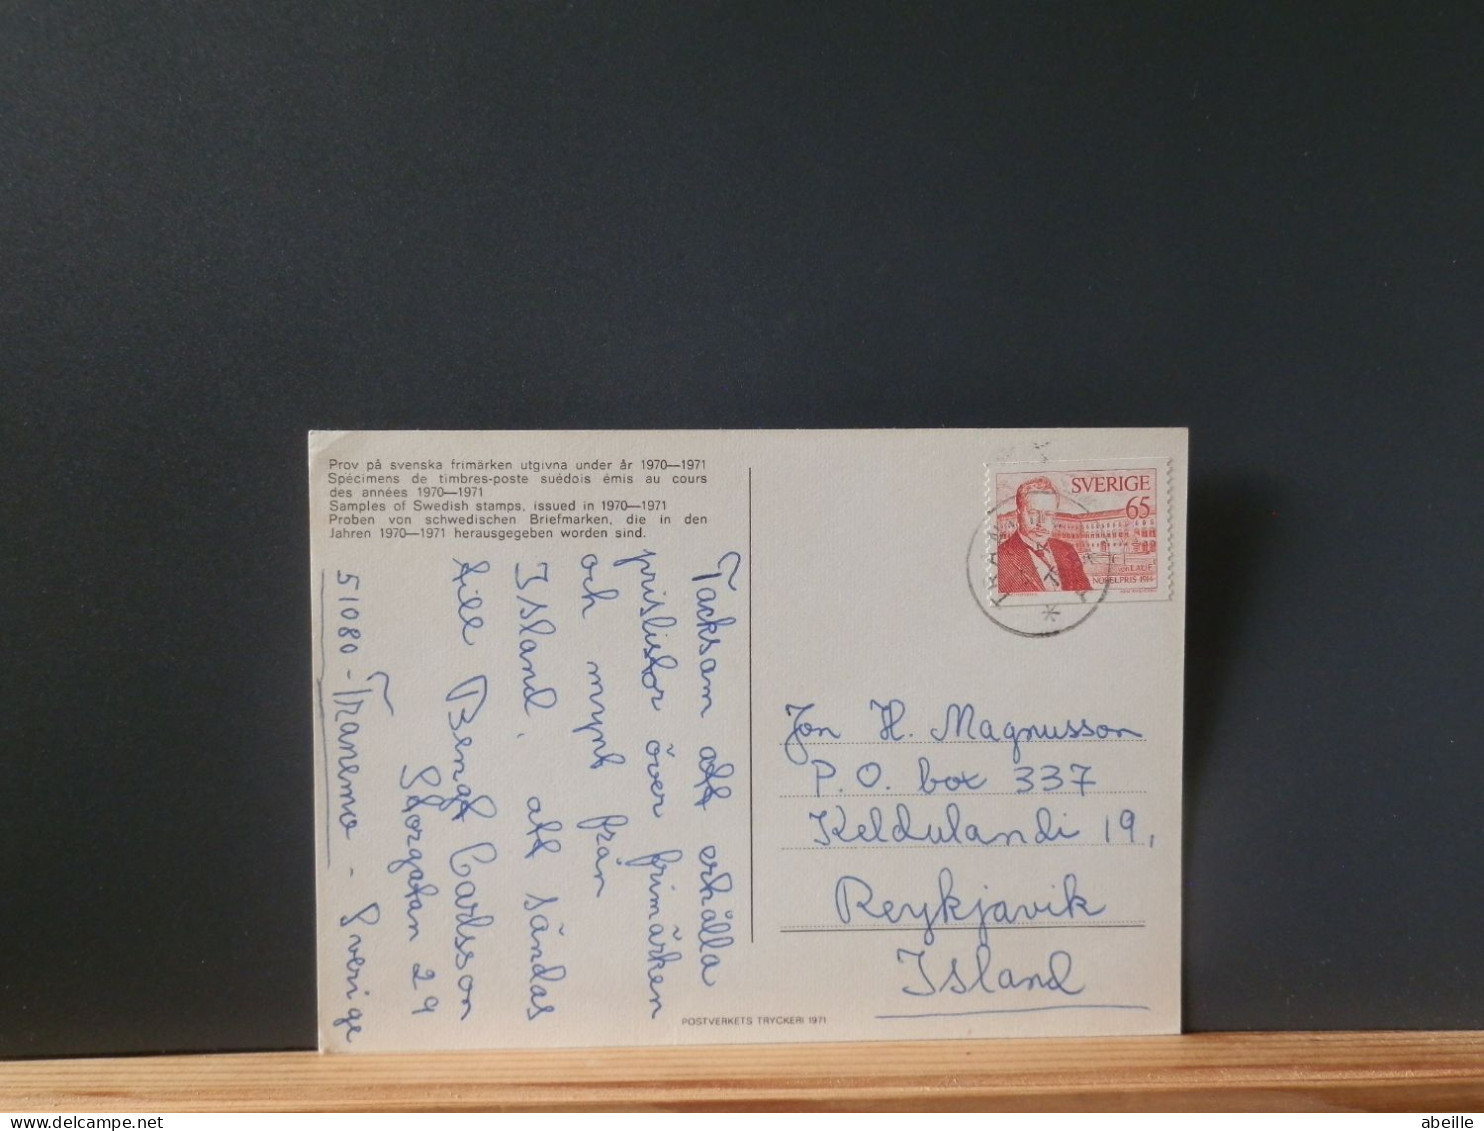 Prov på svenska frimärken utgivna under år 1970—1971
Spécimens de timbres-poste suédois émis au cours
des années 1970—1971
Samples of Swedish stamps, issued in 1970—1971
Proben von schwedischen Briefmarken, die in den
Jahren 1970—1971 herausgegeben worden sind.
Tacksam att erhålla
prislistor över frimärken
och mynt från
Island, att sändas
till Bengt Carlsson
Storgatan 29
51080 - Tranemo - Sverige
SVERIGE
65
NOBELPRIS 1914
Jon H. Magnusson
P.O. box 337
Keldulandi 19,
Reykjavik
Island
POSTVERKETS TRYCKERI 1971
abeille